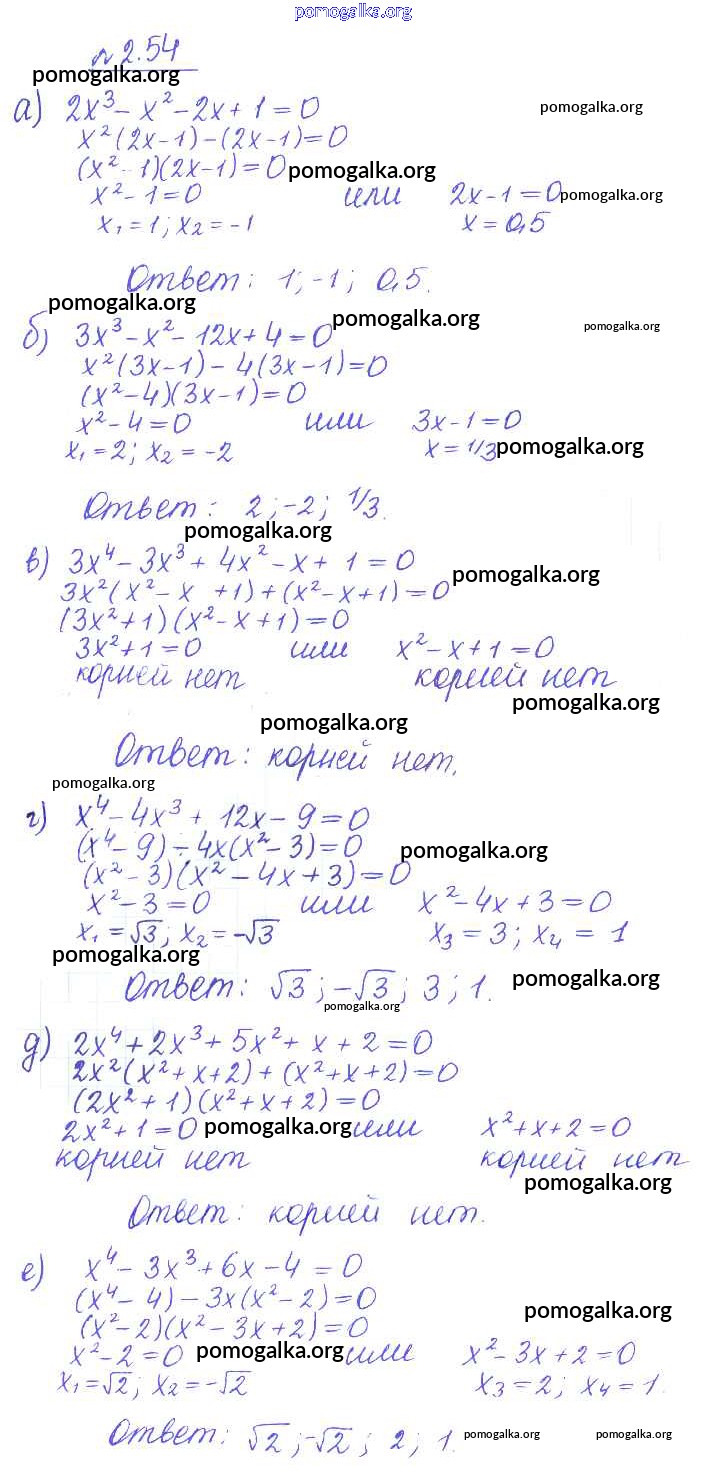 pomogalka.org
№ 2.54
pomogalka.org
а) 2x³ - x² - 2x + 1 = 0 pomogalka.org
x²(2x-1) - (2x-1) = 0
(x² - 1)(2x-1) = 0 pomogalka.org
x² - 1 = 0 или 2x - 1 = 0 pomogalka.org
x₁ = 1; x₂ = -1 x = 0,5
Ответ: 1; -1; 0,5.
pomogalka.org
б) 3x³ - x² - 12x + 4 = 0 pomogalka.org pomogalka.org
x²(3x-1) - 4(3x-1) = 0
(x² - 4)(3x - 1) = 0
x² - 4 = 0 или 3x - 1 = 0
x₁ = 2; x₂ = -2 x = 1/3 pomogalka.org
Ответ: 2; -2; 1/3.
pomogalka.org
в) 3x⁴ - 3x³ + 4x² - x + 1 = 0
3x²(x² - x + 1) + (x² - x + 1) = 0 pomogalka.org
(3x² + 1)(x² - x + 1) = 0
3x² + 1 = 0 или x² - x + 1 = 0
корней нет корней нет
pomogalka.org
pomogalka.org
Ответ: корней нет.
pomogalka.org
г) x⁴ - 4x³ + 12x - 9 = 0
(x⁴ - 9) - 4x(x² - 3) = 0 pomogalka.org
(x² - 3)(x² - 4x + 3) = 0
x² - 3 = 0 или x² - 4x + 3 = 0
x₁ = √3; x₂ = -√3 x₃ = 3; x₄ = 1
pomogalka.org
Ответ: √3; -√3; 3; 1. pomogalka.org
pomogalka.org
д) 2x⁴ + 2x³ + 5x² + x + 2 = 0
2x²(x² + x + 2) + (x² + x + 2) = 0
(2x² + 1)(x² + x + 2) = 0
2x² + 1 = 0 pomogalka.org или x² + x + 2 = 0
корней нет корней нет
pomogalka.org
Ответ: корней нет.
е) x⁴ - 3x³ + 6x - 4 = 0
(x⁴ - 4) - 3x(x² - 2) = 0
(x² - 2)(x² - 3x + 2) = 0 pomogalka.org
x² - 2 = 0 pomogalka.org или x² - 3x + 2 = 0
x₁ = √2; x₂ = -√2 x₃ = 2; x₄ = 1.
Ответ: √2; -√2; 2; 1. pomogalka.org pomogalka.org